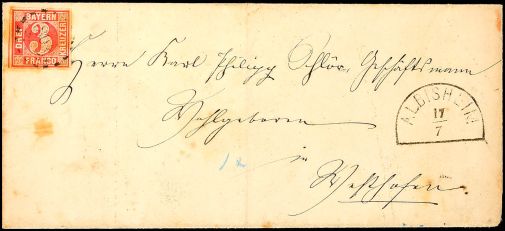 BAYERN
DREI 3 KREUZER
FRANCO
Herrn Karl Philipp Schlör, Geschäftsmann
Wohlgeboren
ALBISHEIM
17
7
in
Westhofen